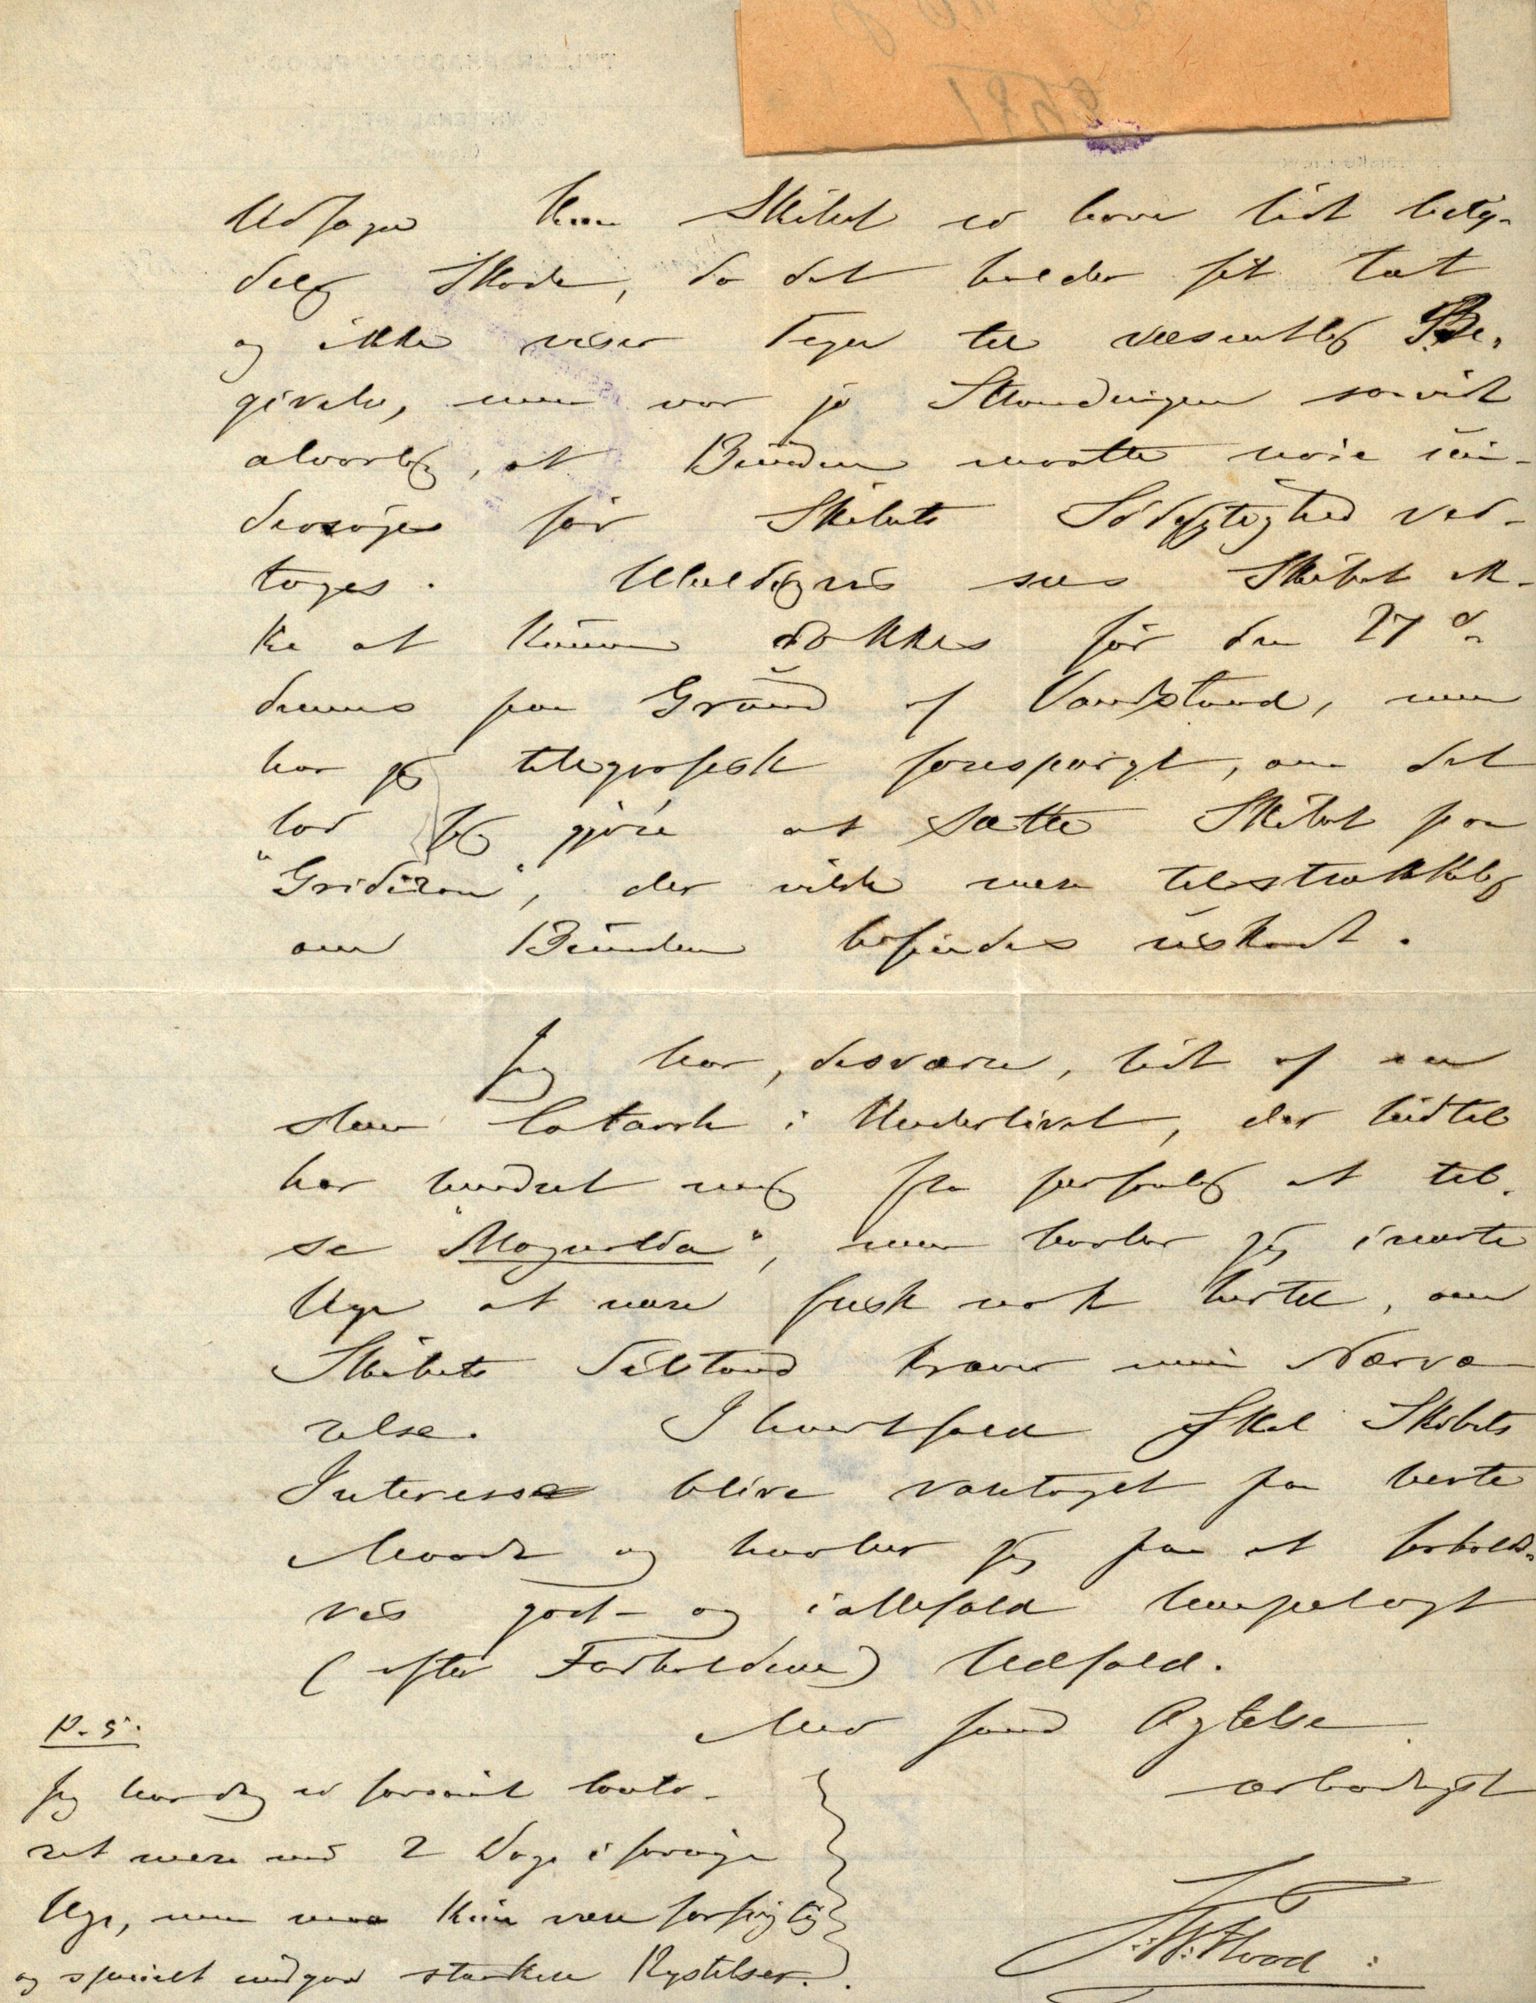 8681
Udsagn kan Skibet ei have lidt bety-
delig Skade, da det holder sit tæt
og ikke viser Tegn til væsentlig Be-
givelse, men var jo Strandingen saavidt
alvorlig, at Bunden maatte nøie un-
dersøges før Skibets Sødygtighed ved-
toges. Uheldigvis sees Skibet ik-
ke at kunne dokkes før den 27de
dennes paa Grund af Vandstand, men
har jeg telegrafisk forespørgt, om det
lod sig gjøre at sætte Skibet paa
"Gridiron", der vilde være tilstrækkelig
om Bunden befindes uskadt.
Jeg har, desværre, lidt af en
slem Catarrh i Underlivet, der hidtil
har hindret mig fra personlig at til-
se "Magnolia", men haaber jeg i næste
Uge at være frisk nok hertil, om
Skibets Tilstand kræver min Nærvæ-
relse. I hvertfald skal Skibets
Interesse blive varetaget paa beste
Maade og haaber jeg paa et forholds-
vis godt- og iallefald hurtigt
(efter Forholdene) Udfald.
Med sand Agtelse
ærbødigst
F. W. Flood
P.S.
Jeg har dog ei forsømt Conto-
ret mere end 2 Dage i forrige
Uge, men maa kun være forsigtig
og specielt undgaa stærkere Rystelser.